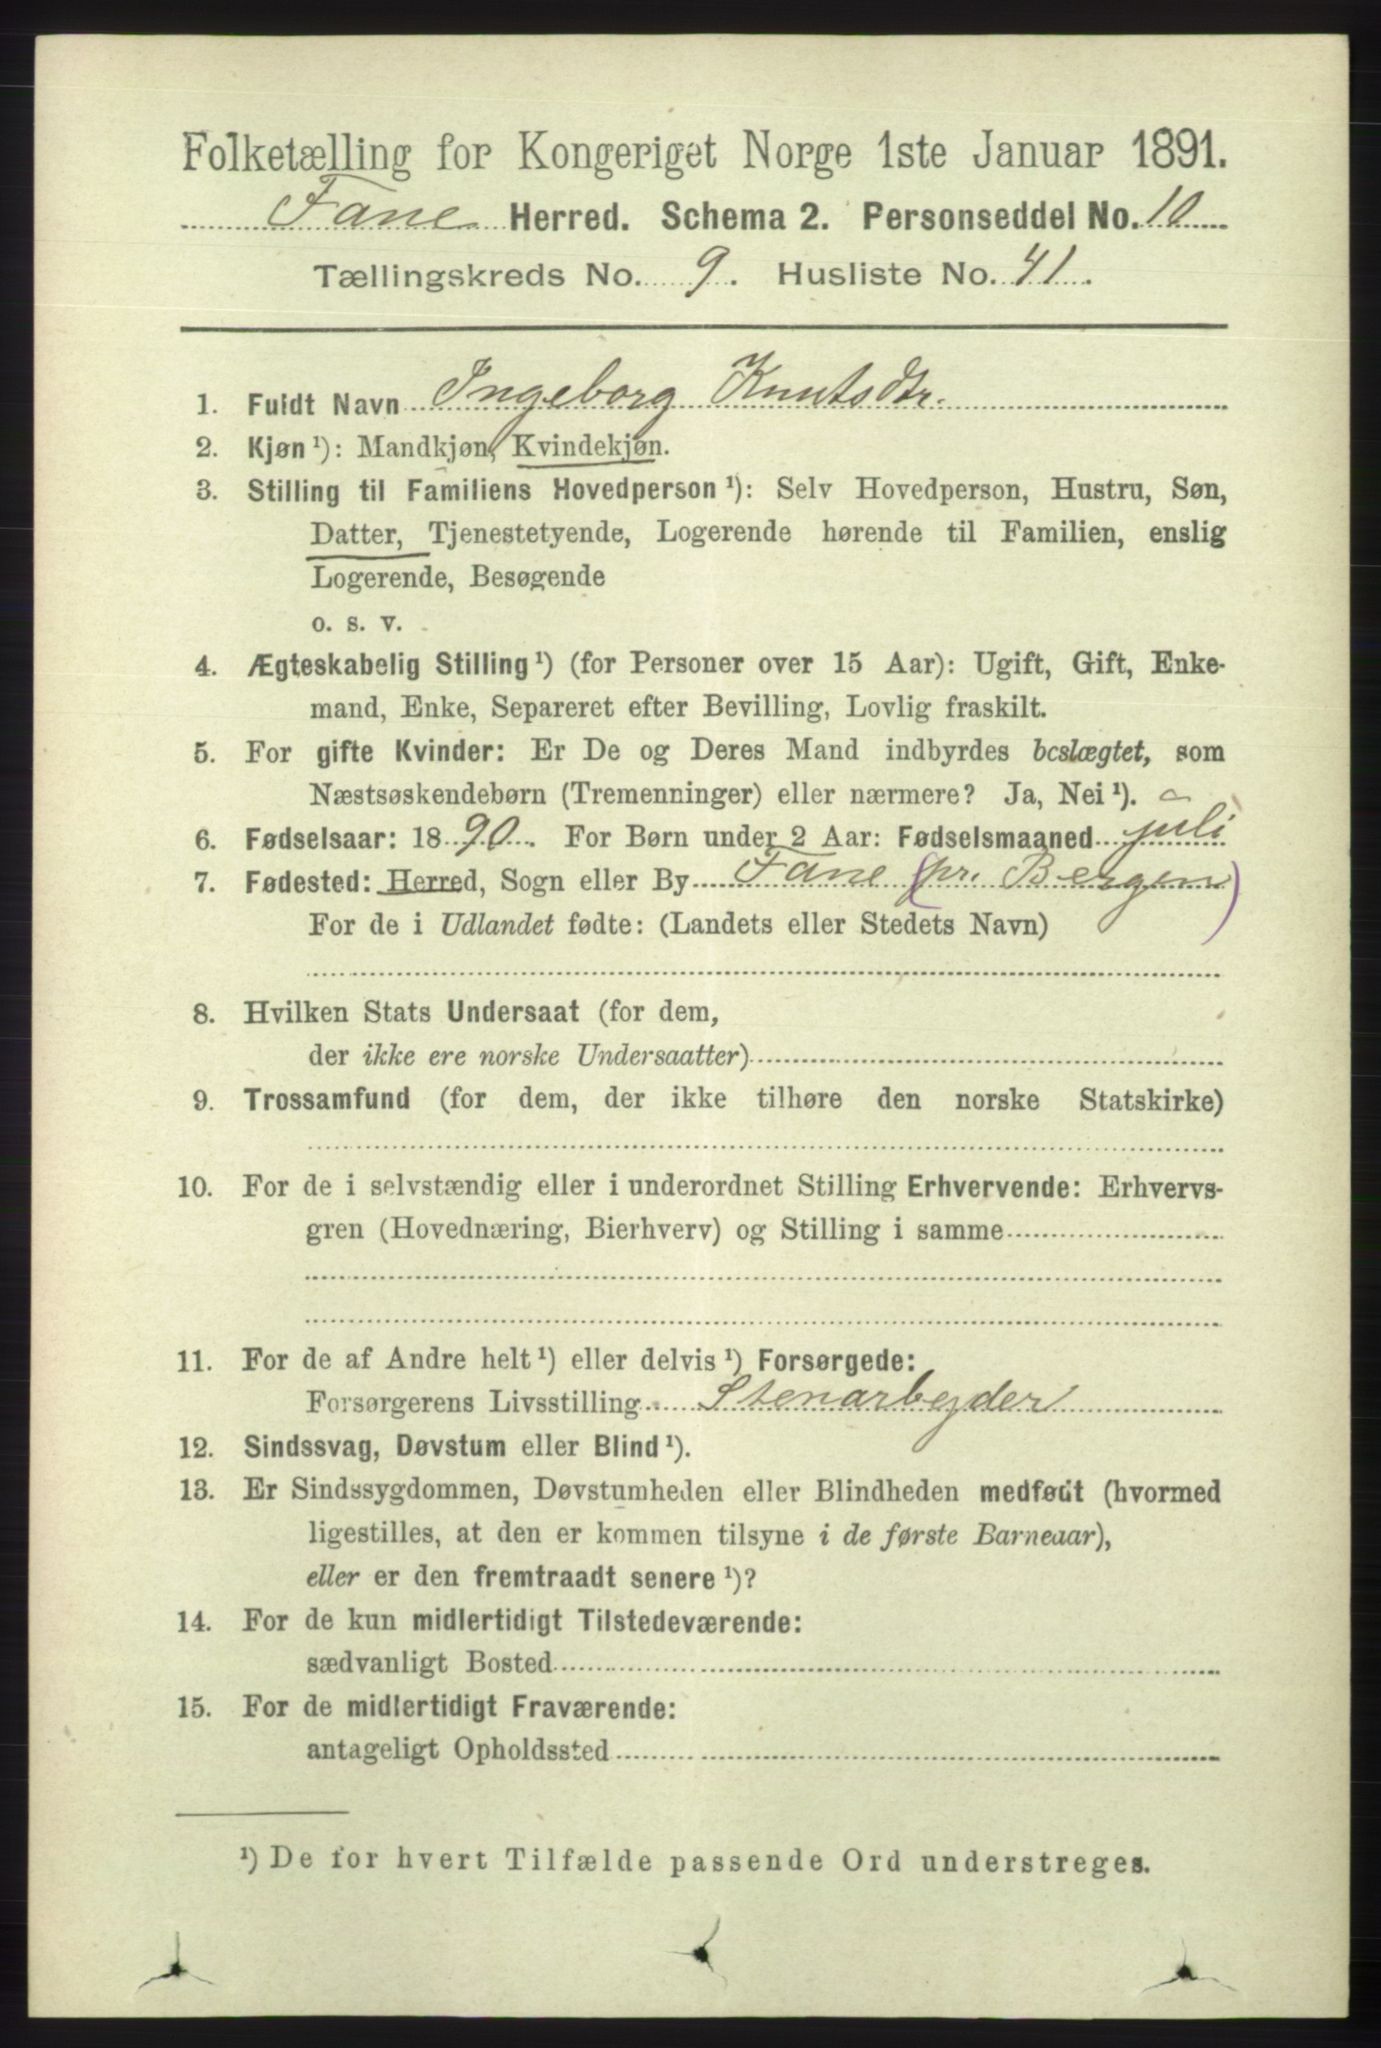 Folketælling for Kongeriget Norge 1ste Januar 1891.
Fane Herred. Schema 2. Personseddel No. 10
Tællingskreds No. 9. Husliste No. 41.
1. Fuldt Navn Ingeborg Knutsdtr.
2. Kjøn ¹): Mandkjøn, Kvindekjøn.
3. Stilling til Familiens Hovedperson ¹): Selv Hovedperson, Hustru, Søn,
Datter, Tjenestetyende, Logerende hørende til Familien, enslig
Logerende, Besøgende
o. s. v.
4. Ægteskabelig Stilling ¹) (for Personer over 15 Aar): Ugift, Gift, Enke-
mand, Enke, Separeret efter Bevilling, Lovlig fraskilt.
5. For gifte Kvinder: Er De og Deres Mand indbyrdes beslægtet, som
Næstsøskendebørn (Tremenninger) eller nærmere? Ja, Nei ¹).
6. Fødselsaar: 1890. For Børn under 2 Aar: Fødselsmaaned juli
7. Fødested: Herred, Sogn eller By Fane (pr. Bergen)
For de i Udlandet fødte: (Landets eller Stedets Navn)
8. Hvilken Stats Undersaat (for dem,
der ikke ere norske Undersaatter)
9. Trossamfund (for dem, der ikke tilhøre den norske Statskirke)
10. For de i selvstændig eller i underordnet Stilling Erhvervende: Erhvervs-
gren (Hovednæring, Bierhverv) og Stilling i samme
11. For de af Andre helt ¹) eller delvis ¹) Forsørgede:
Forsørgerens Livsstilling Stenarbejder
12. Sindssvag, Døvstum eller Blind ¹).
13. Er Sindssygdommen, Døvstumheden eller Blindheden medfødt (hvormed
ligestilles, at den er kommen tilsyne i de første Barneaar),
eller er den fremtraadt senere ¹)?
14. For de kun midlertidigt Tilstedeværende:
sædvanligt Bosted
15. For de midlertidigt Fraværende:
antageligt Opholdssted
¹) De for hvert Tilfælde passende Ord understreges.